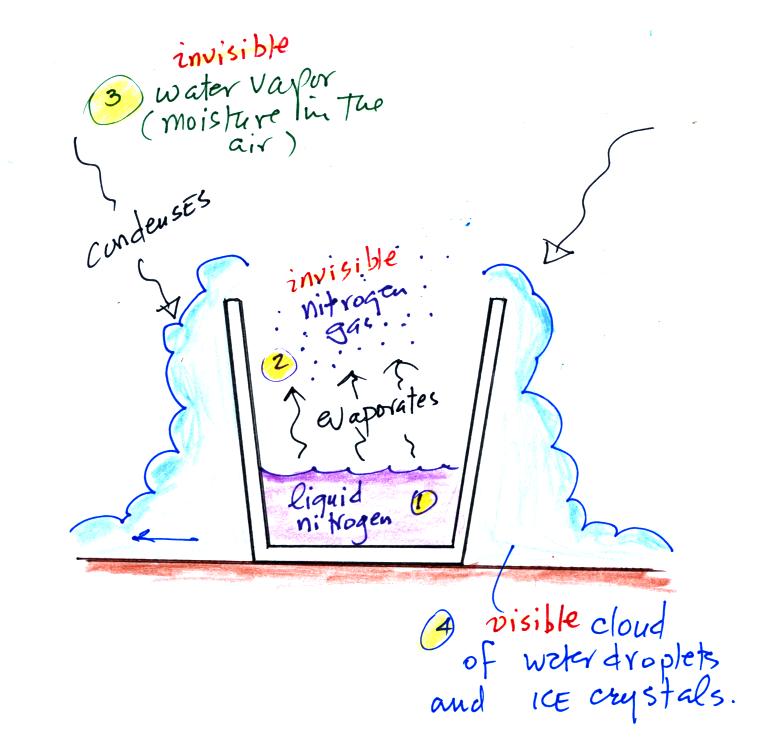 invisible
3 water vapor
(moisture in the
air)
condenses
invisible
nitrogen
gas
2
evaporates
liquid
nitrogen 1
4 visible cloud
of water droplets
and ICE crystals.